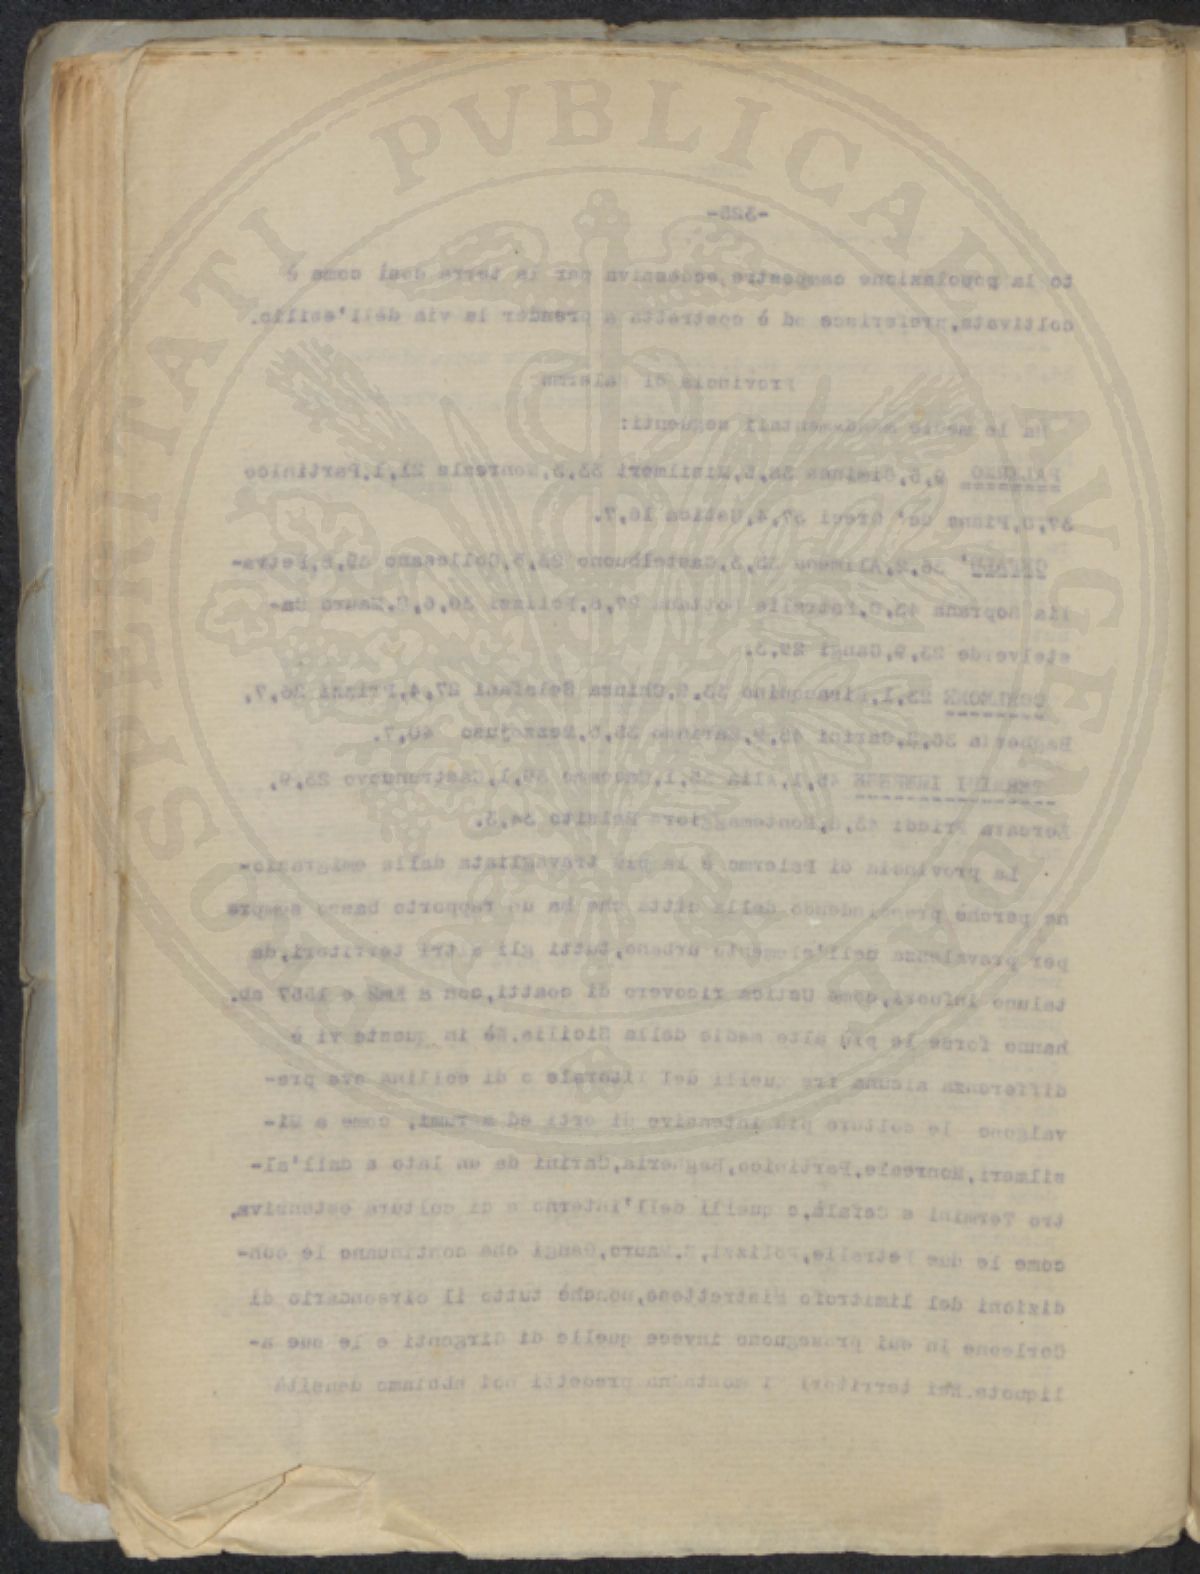 -325-
to la popolazione campestre, eccessiva per la terra così come è
coltivata, preferisce od è costretta a prender la via dell'esilio.
Provincia di Palermo
Ha le medie seguenti:
PALERMO 9,5, Ciminna 38,5, Misilmeri 33,5, Monreale 21,1, Partinico
37,0, Piana de' Greci 37,4, Ustica 16,7.
CEFALU' 36,2, Alimena 35,3, Castelbuono 23,5, Collesano 39,8, Petra-
lia Soprana 43,0, Petralia Sottana 27,8, Polizzi 30,6, S. Mauro Ca-
stelverde 23,9, Gangi 29,3.
CORLEONE 23,1, Bisacquino 33,9, Chiusa Sclafani 27,4, Prizzi 26,7,
Bagheria 36,2, Carini 43,9, Marineo 35,6, Mezzojuso 40,7.
TERMINI IMERESE 45,1, Alia 35,1, Caccamo 39,1, Castronuovo 23,9,
Lercara Friddi 43,8, Montemaggiore Belsito 34,3.
La provincia di Palermo è la più travagliata dalla emigrazio-
ne perchè prescindendo dalla città che ha un rapporto basso sempre
per prevalenza dell'elemento urbano, tutti gli altri territori, da
taluno infuori, come Ustica ricovero di coatti, con a Kmq e 1567 ab.
hanno forse le più alte medie della Sicilia. Nè in queste vi è
differenza alcuna fra quelli del litorale o di collina ove pre-
valgono le colture più intensive di orti ed agrumi, come a Mi-
silmeri, Monreale, Partinico, Bagheria, Carini da un lato e dall'al-
tro Termini e Cefalù, e quelli dell'interno e di coltura estensiva,
come le due Petralie, Polizzi, S. Mauro, Gangi che continuano le con-
dizioni del limitrofo Mistrettese, nonchè tutto il circondario di
Corleone in cui proseguono invece quelle di Girgenti e le due a-
liquote. Nei territori di montagna predetti noi abbiamo densità
PROSPERITATI PVBLICAE AVGENDAE